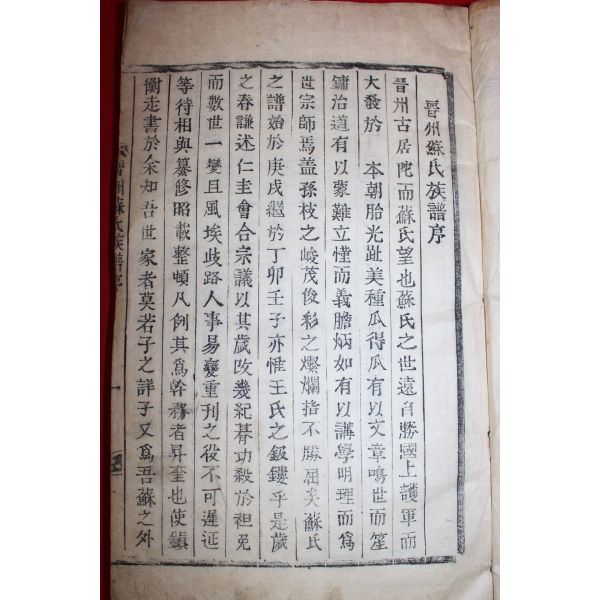 晉州蘇氏族譜序
晉州古居陁而蘇氏望也蘇氏之世遠自勝國上護軍而
大發於 本朝胎光趾美種瓜得瓜有以文章鳴世而笙
鏞治道有以蒙難立慬而義膽炳如有以講學明理而爲
世宗師焉盖孫枝之峻茂俊彩之燦爛指不勝屈矣蘇氏
之譜始於庚戌繼於丁卯壬子亦惟王氏之鈒鏤乎是歲
之春謙述仁圭會合宗議以其歲改幾紀朞功殺於袒免
而數世一變且風埃歧路人事易變重刊之役不可遲延
等待相與纂修昭載整頓凡例其爲幹務者昇奎也使鎭
衡走書於余知吾世家者莫若子之詳子又爲吾蘇之外
晉州蘇氏族譜序
一